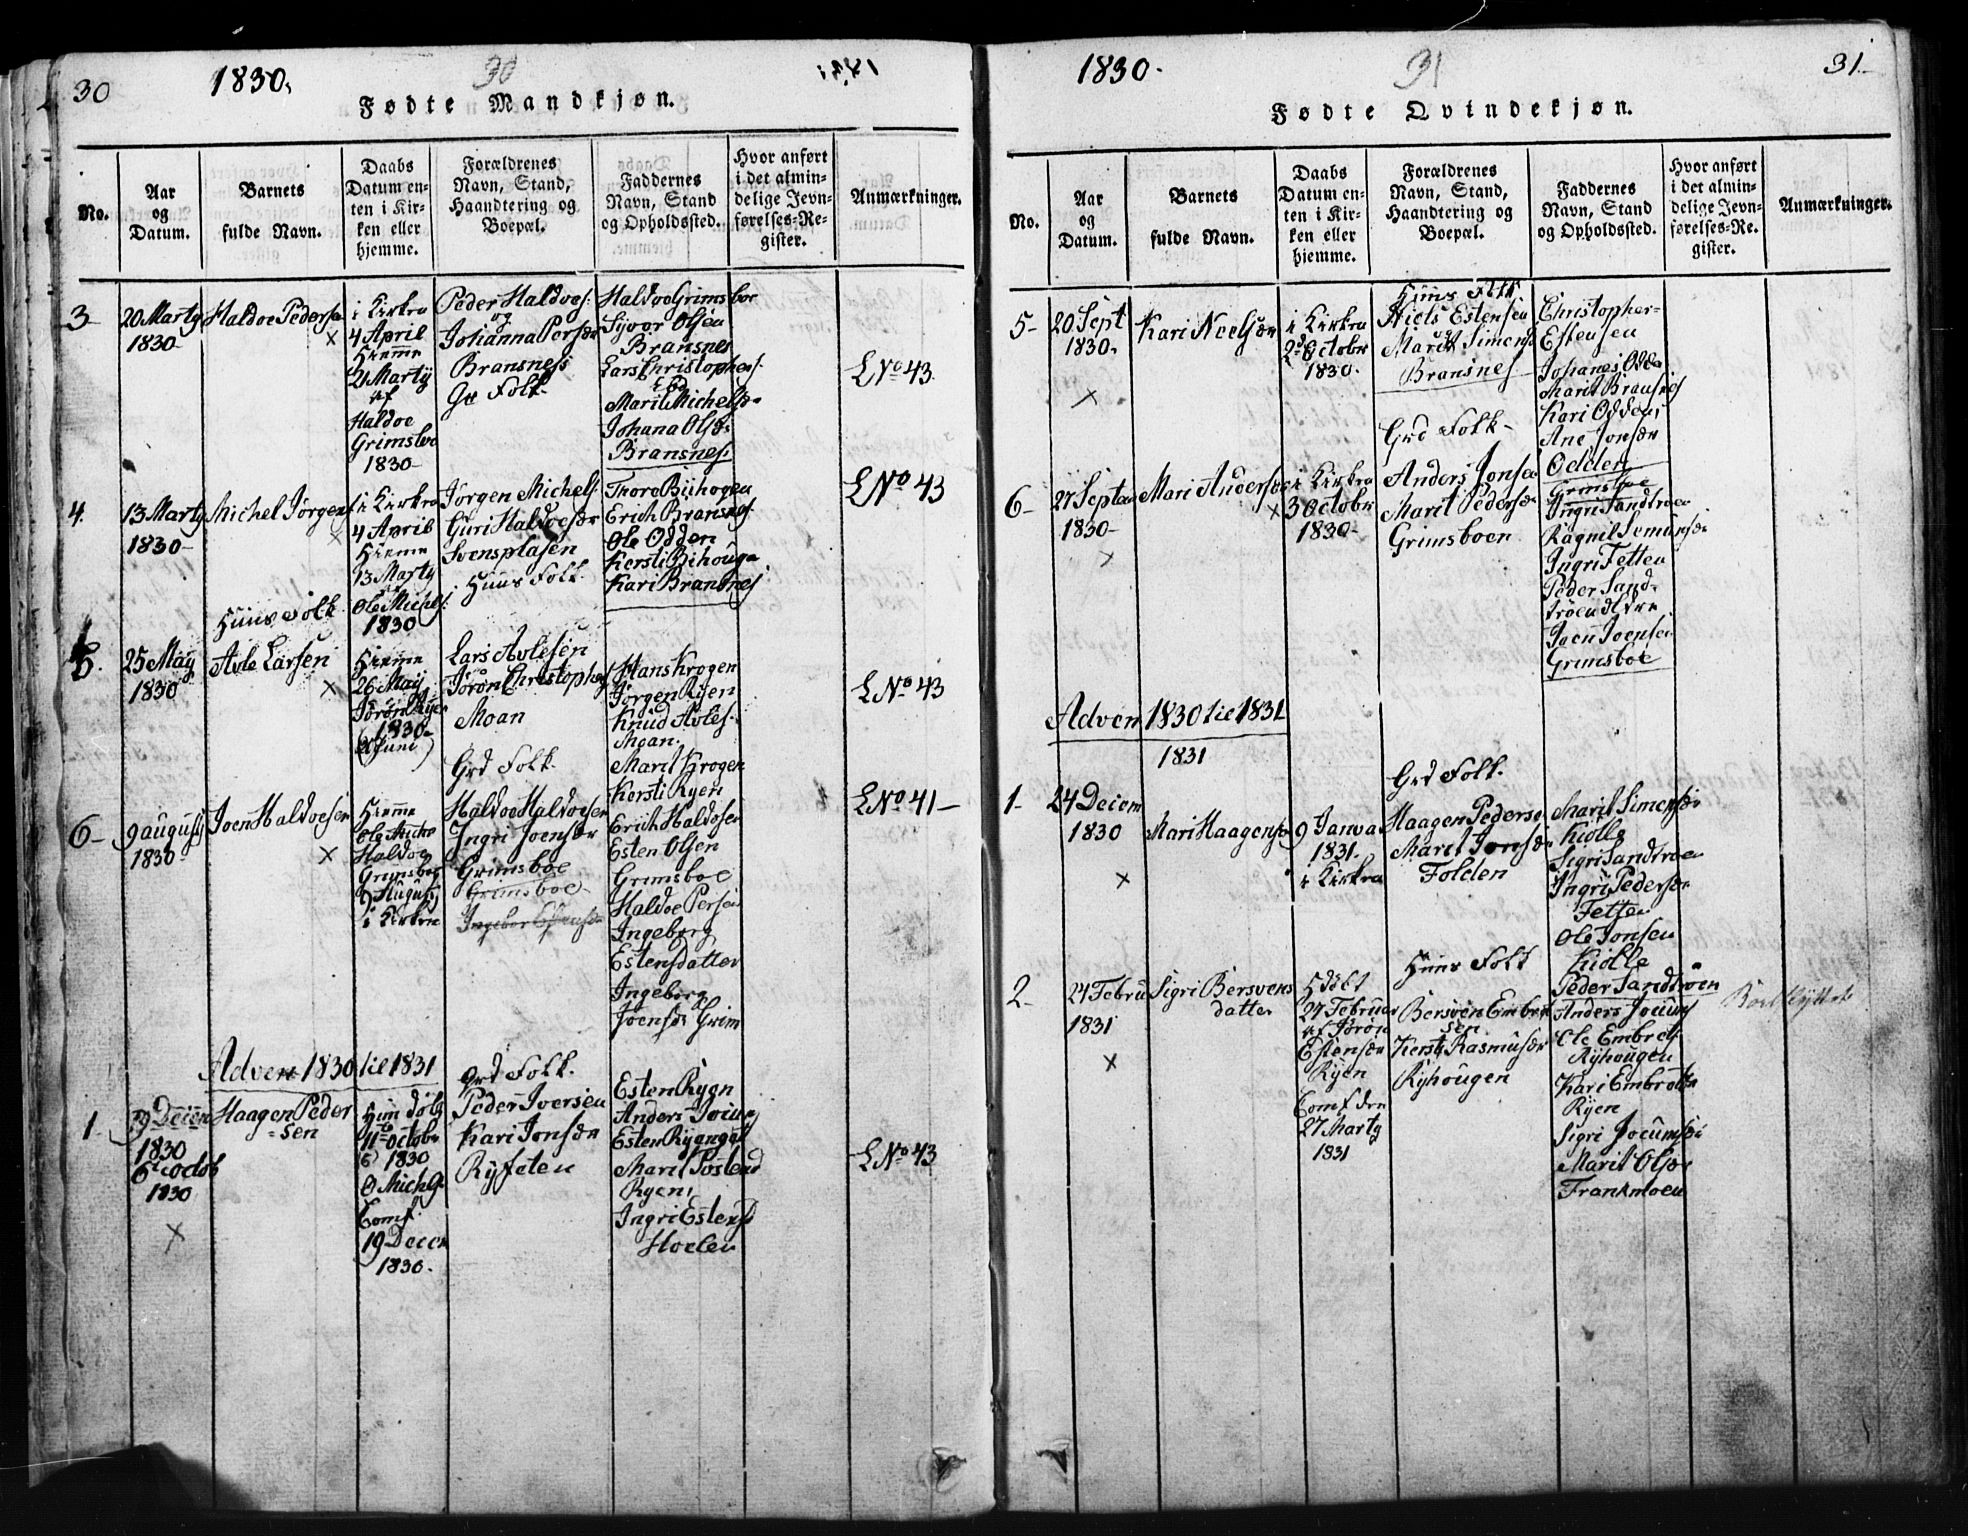 30
1830.
30
Fødte Mandkjøn.
No.
Aar
og
Datum.
Barnets
fulde Navn.
Daabs
Datum en-
ten i Kir-
ken eller
hjemme.
Forældrenes
Navn, Stand,
Haandtering og
Boepæl.
Faddernes
Navn, Stand
og Opholdssted.
Hvor anført
i det almin-
delige Jevn-
førelses-Re-
gister.
Anmærkninger.
3
20 Marty
1830
Haldoe Pederse
×
i Kirken
4 April
Hiemme
21 Marty
af
Haldoe
Grimsboe
1830
Peder Haldoes.
og
Johanna Persdr
Bransnes
Gr Folk
Haldoe Grimsboe
Sivor Olsen
Bransnes
Lars Christophers.
Marit Michelsdr
Johana Olsdr
Bransnes
LNo 43
4.
13 Marty
1830
Michel Jørgens
×
i Kirken
4 April
Hiemme
13 Marty
Ole Michels.
1830
Jørgen Michels.
Guri Haldoesdr
Svensplasen
Huus Folk.
Thore Biihogen
Erich Bransnes
Ole Odden
Kersti Bihouge
Kari Bransnes
LNo 43
Huus Folk
5.
25 May
1830
Avle Larsen
×
Hiemme
26 May
Jørøn Ryen
1830
Juni)
Lars Avlesen
Jørøn Christophers
Moan
Grd Folk.
Hans Krogen
Jørgen Ryen
Knud Avles.
Moan.
Marit Krogen
Kersti Ryen
LNo 43
6
9 augusty
1830
Joen Haldoesen
×
Hiemme
Ole Micho
Haldoe
Grimsboe
9 August
i Kirken
Haldoe Haldoesen
Ingri Joensdr
Grimsboe
Grimsboe
Erich Haldosen
Esten Olsen
Grimsboe
Haldoe Persen
Ingeborg
Estensdatter
Ingeborg
Joensdr Grim
LNo 41
Adven 1830 til 1831
1.
19 Deien
1830
6 octob
1830
×
Haagen Peder
=sen
Him døbt
11 octobr
1830
O Mich G
Comf.
19 Decem
1830.
Grd Folk.
Peder Iversen
Kari Jonsdr
Ryfeten
Esten Rygn
Anders
Esten Rygnget
Marit Postend
Ryen,
Ingri Estensd
Hoelen
LNo 43
1830.
31
31.
Fødte Qvindekjøn.
No.
Aar
og
Datum.
Barnets
fulde Navn.
Daabs
Datum en-
ten i Kir-
ken eller
hjemme.
Forældrenes
Navn, Stand,
Haandtering og
Boepæl.
Faddernes
Navn, Stand
og Opholdssted.
Hvor anført
i det almin-
delige Jevn-
førelses-Re-
gister.
Anmærkninger.
5
20 Sept
1830.
×
Kari Neelsdr
i Kirken
2d Octobr
1830.
Huus Folk
Niels Estensen
Marit Simensd
Bransnes
Christopher
Estensen
Johanes Odde
Marit Bransnes
Kari Odden,
Ane Jonsdr
Odden
Grd Folk
6
27 Septem
1830
×
Mari Andersdr
×
i Kirken
3 Octobr
1830
Anders Jonsen
Marit Pedersdr
Grimsboen
Grimsboe
Ingri Sandtroen
Ragnil Semunsdr
Ingri Fetten
Peder Sand-
trøen
Joen Joensen
Grimsboe
Adven 1830 til 1831
1831
1
24 Deiem
1830
×
Mari Haagensdr
9 Janva
1831.
i Kirken
Grd Folk.
Haagen Pederse
Marit Jonsdr
Folden
Marit Simensdr
Kiølle
Sigri Sandtroen
Ingri Pedersdr
Fetten
Ole Jonsen
Kiølle
Peder Sandtrøen
2
24 Febru
1831
×
Sigri Bersvens
datter
Hdøbt
27 Februar
af Jørøn
Estensdr
Ryen
Comf den
27 Marty
1831
Huus Folk
Bersven Embret
sen
Kersti Rasmusdr
Ryhougen
Anders Jocums
Ole Embrets
Ryhougen
Kari Embretsdr
Ryen
Sigri Jocumsdr
Marit Olsdr
Frankmoen